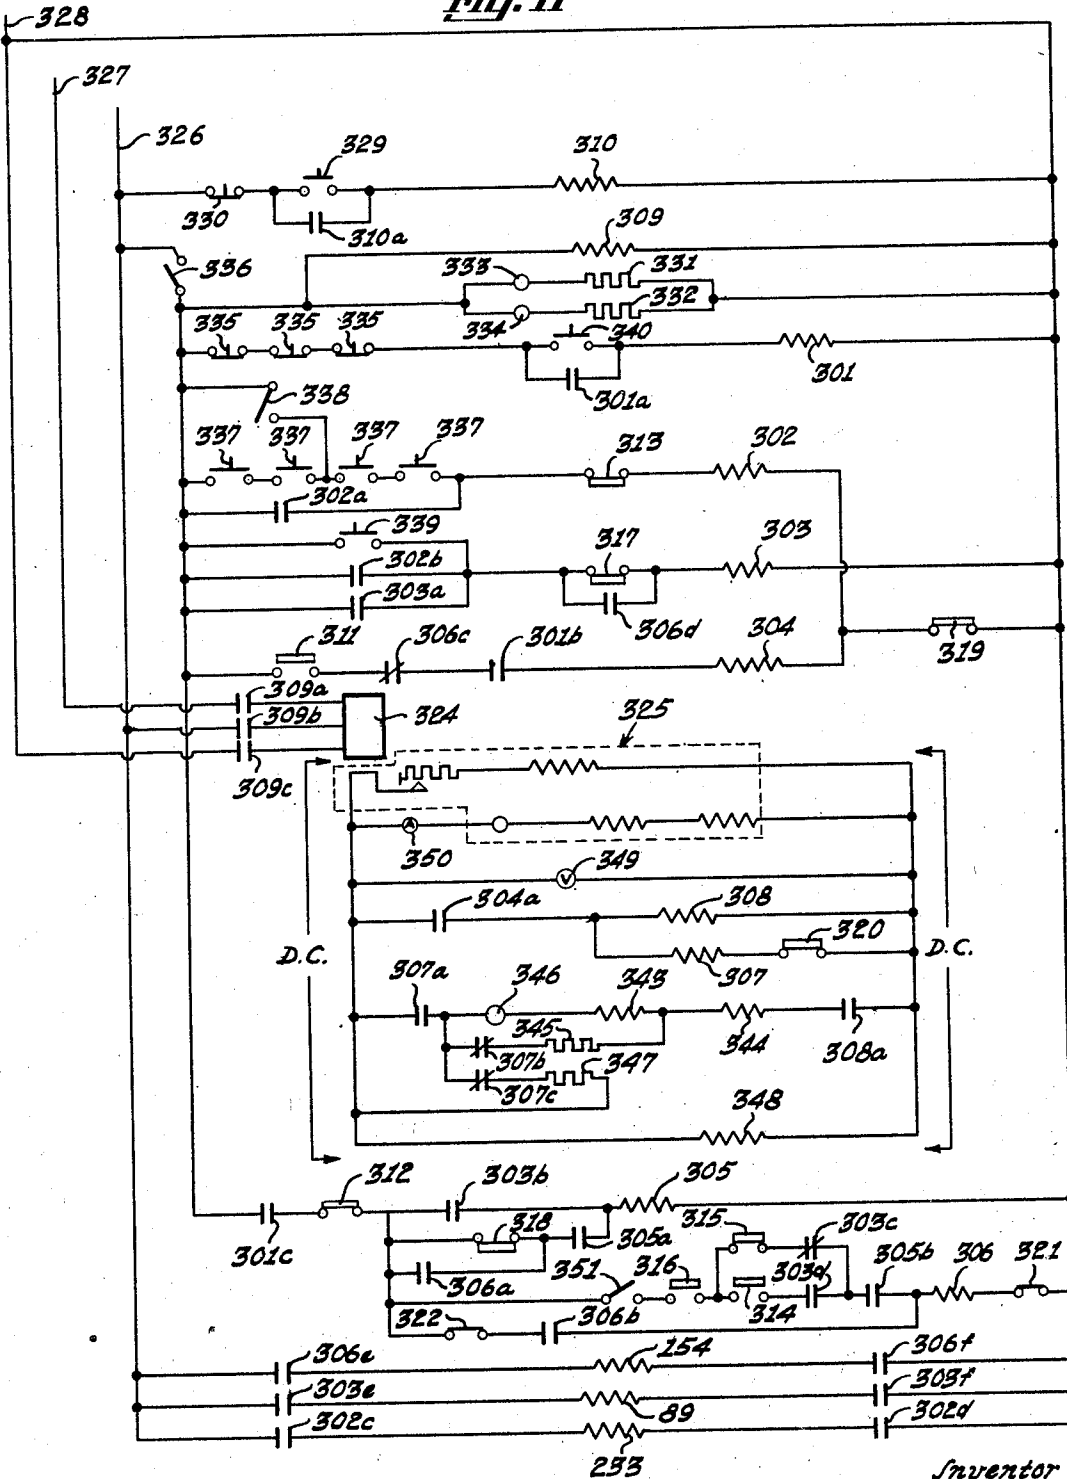 Fig. 11
328
327
326
329
310
330
310a
309
336
333
331
332
334
335 335 335
340
301
301a
338
337 337 337 337
313
302
302a
339
317
303
302b
303a
306d
311
306c
301b
304
319
309a
309b
324
325
309c
350
349
304a
308
D.C.
320
D.C.
307a
307
346
343
345
344
308a
307b
347
307c
348
312
303b
305
301c
318
305a
315
303c
306a
351
316
303d
305b
306
321
314
322
306b
306e
154
306f
303e
89
303f
302c
233
302d
Inventor